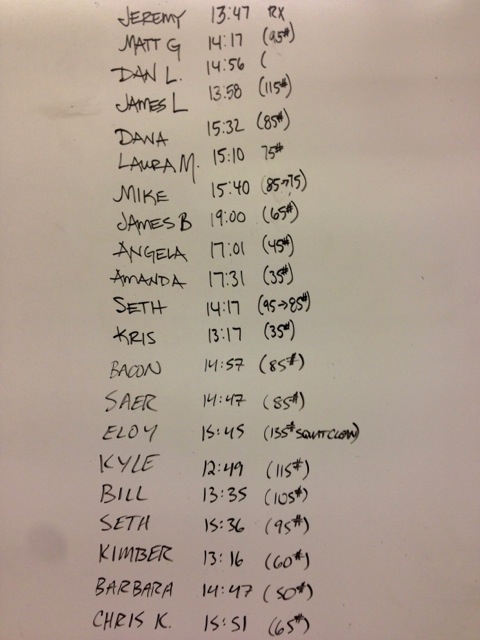 JEREMY 13:47 RX
MATT G 14:17 (95#)
DAN L. 14:56 (
JAMES L 13:58 (115#)
DANA 15:32 (85#)
LAURA M. 15:10 75#
MIKE 15:40 (85→75)
JAMES B 19:00 (65#)
ANGELA 17:01 (45#)
AMANDA 17:31 (35#)
SETH 14:17 (95→85#)
KRIS 13:17 (35#)
BACON 14:57 (85#)
SAER 14:47 (85#)
ELOY 15:45 (135# SQUAT CLEAN)
KYLE 12:49 (115#)
BILL 13:35 (105#)
SETH 15:36 (95#)
KIMBER 13:16 (60#)
BARBARA 14:47 (50#)
CHRIS K. 15:51 (65#)